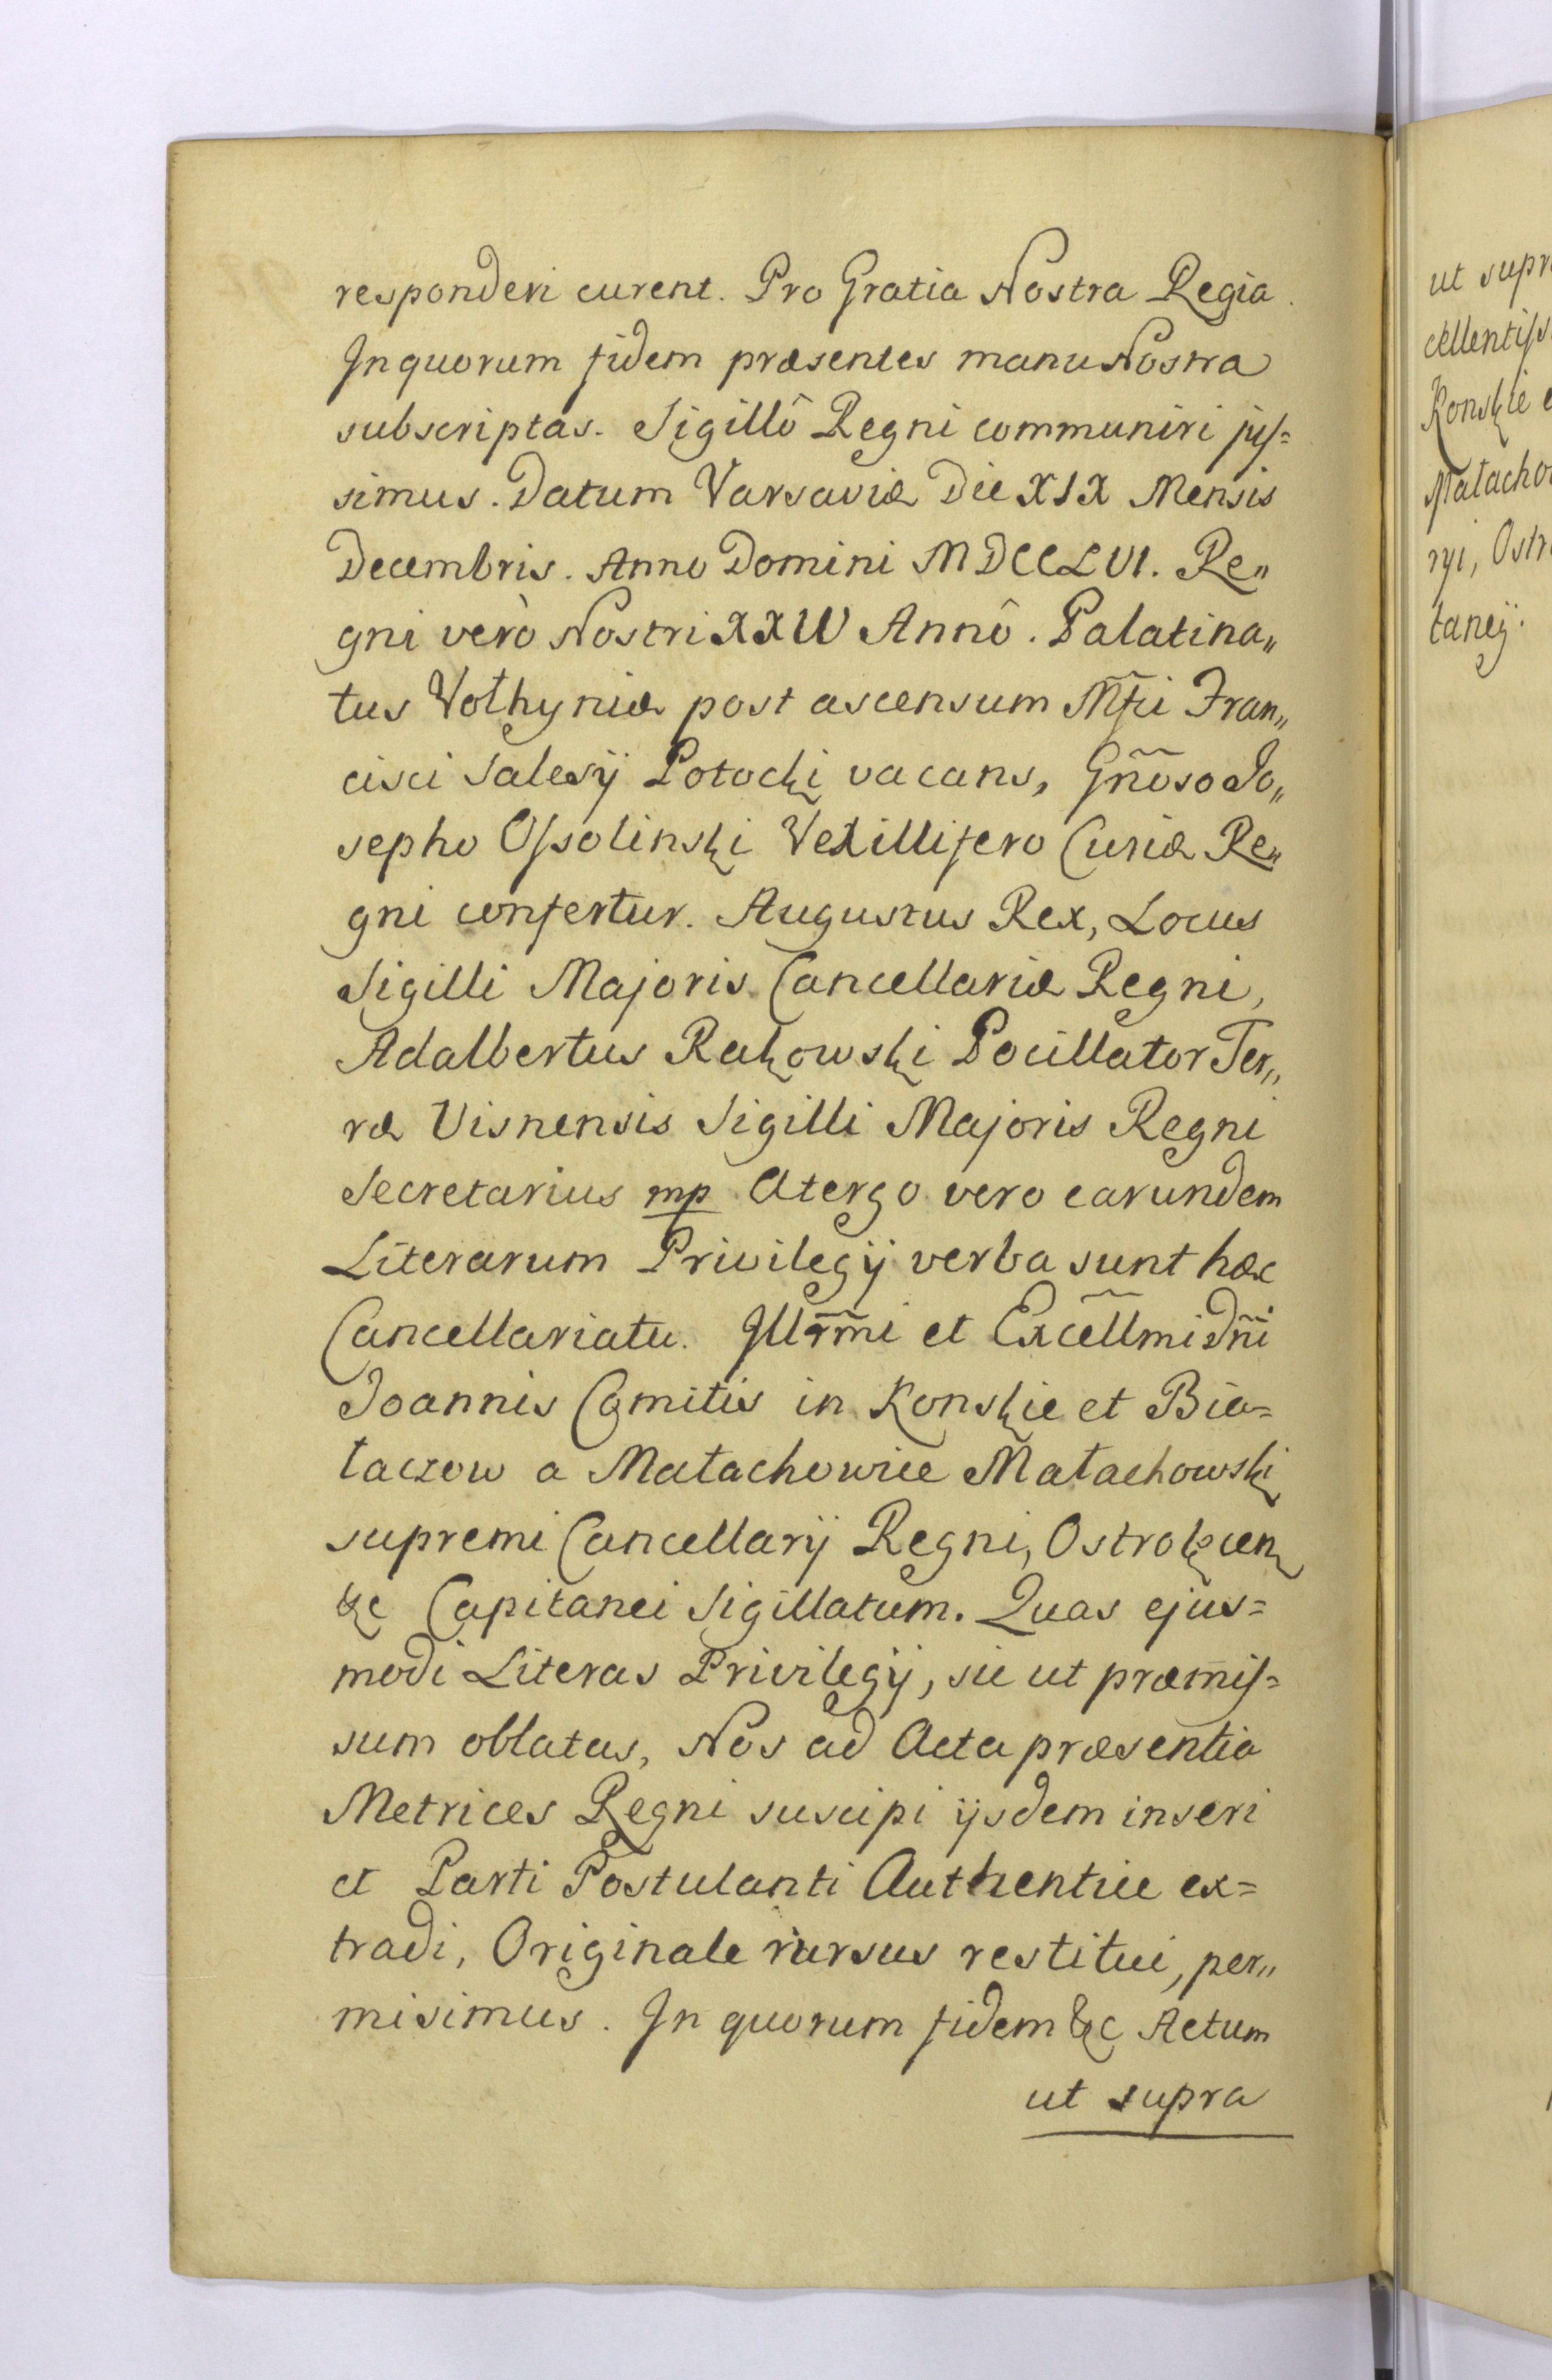 responderi curent. Pro Gratia Nostra Regia.
In quorum fidem præsentes manu Nostra
subscriptas. Sigillô Regni communiri jus=
simus. Datum Varsaviæ Die XIX Mensis
Decembris. Anno Domini MDCCLVI. Re„
gni verò Nostri XXIV Annô. Palatina„
tus Volhyniæ post ascensum Mfci Fran„
cisci Salesij Potocki vacans, Gñoso Jo„
sepho Ossolinski Vexillifero Curiæ Re„
gni confertur. Augustus Rex, Locus
Sigilli Majoris Cancellariæ Regni,
Adalbertus Rakowski Pocillator Ter„
ræ Visnensis Sigilli Majoris Regni
Secretarius mp Atergo vero earundem
Literarum Privilegij verba sunt hæc
Cancellariatu. Illr̃mi et Excellmi Dñi
Joannis Comitis in Konskie et Bia=
łaczow a Małachowice Małachowski
supremi Cancellarij Regni, Ostrolecen
&c Capitanei Sigillatum. Quas ejus=
modi Literas Privilegij, sic ut præmis=
sum oblatas, Nos ad Acta præsentia
Metrices Regni suscipi ijsdem inseri
et Parti Postulanti Authentice ex=
tradi, Originale rursus restitui, per„
misimus. In quorum fidem &c Actum
ut supra
ut supr
cellentiss
Konskie e
Małacho
rji, Ostr
taneij.